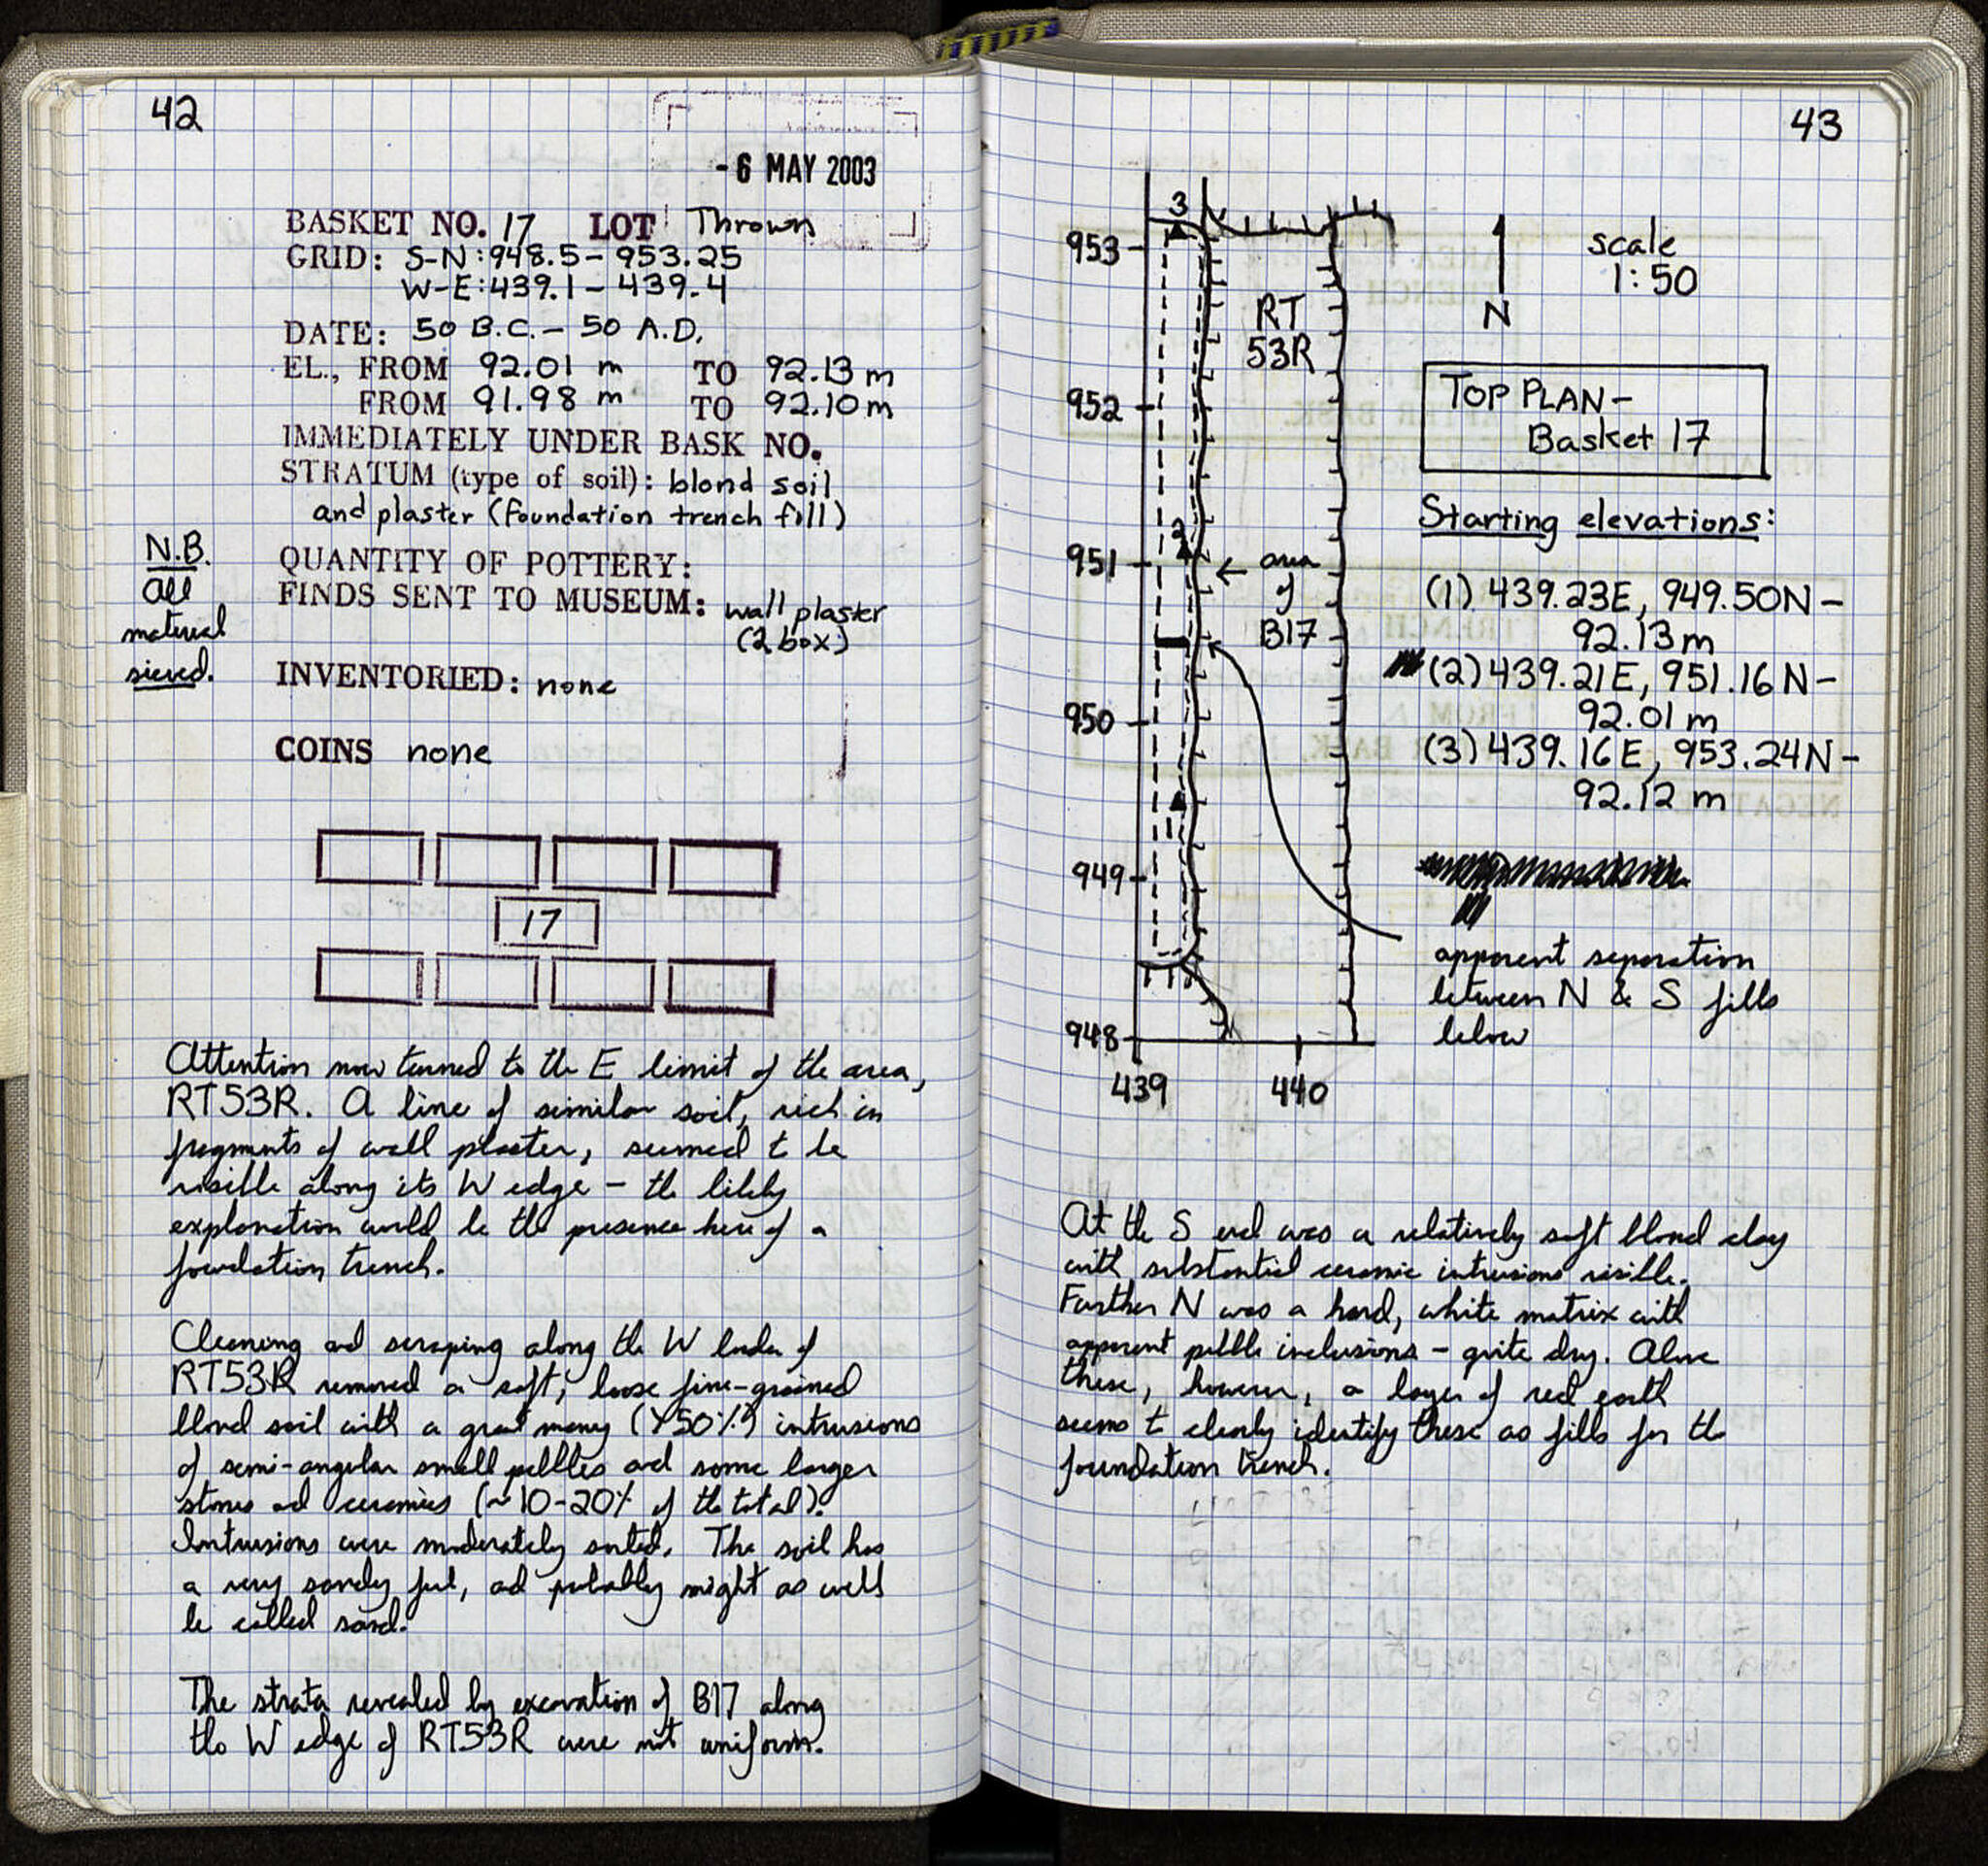 42
- 6 MAY 2003
BASKET NO. 17 LOT Thrown
GRID: S-N: 948.5 - 953.25
W-E: 439.1 - 439.4
DATE: 50 B.C. - 50 A.D.
EL., FROM 92.01 m TO 92.13 m
FROM 91.98 m TO 92.10 m
IMMEDIATELY UNDER BASK NO.
STRATUM (type of soil): blond soil
and plaster (foundation trench fill)
N.B.
All
material
sieved.
QUANTITY OF POTTERY:
FINDS SENT TO MUSEUM: wall plaster
(2 box)
INVENTORIED: none
COINS none
17
Attention now turned to the E limit of the area,
RT53R. A line of similar soil, rich in
fragments of wall plaster, seemed to be
visible along its W edge - the likely
explanation would be the presence here of a
foundation trench.
Cleaning and scraping along the W border of
RT53R removed a soft, loose fine-grained
blond soil with a great many (>50%) intrusions
of semi-angular small pebbles and some larger
stones and ceramics (~10-20% of the total).
Intrusions were moderately sorted. The soil has
a very sandy feel, and probably might as well
be called sand.
The strata revealed by excavation of B17 along
the W edge of RT53R were not uniform.
43
3
953
952
951
950
949
948
439
440
RT
53R
2
area
of
B17
1
N
scale
1:50
TOP PLAN-
Basket 17
Starting elevations:
(1) 439.23E, 949.50N -
92.13 m
(2) 439.21E, 951.16N -
92.01 m
(3) 439.16E, 953.24N -
92.12 m
apparent separation
between N & S fills
below
At the S end was a relatively soft blond clay
with substantial ceramic intrusions visible.
Further N was a hard, white matrix with
apparent pebble inclusions - quite dry. Above
these, however, a layer of red earth
seems to clearly identify these as fills for the
foundation trench.